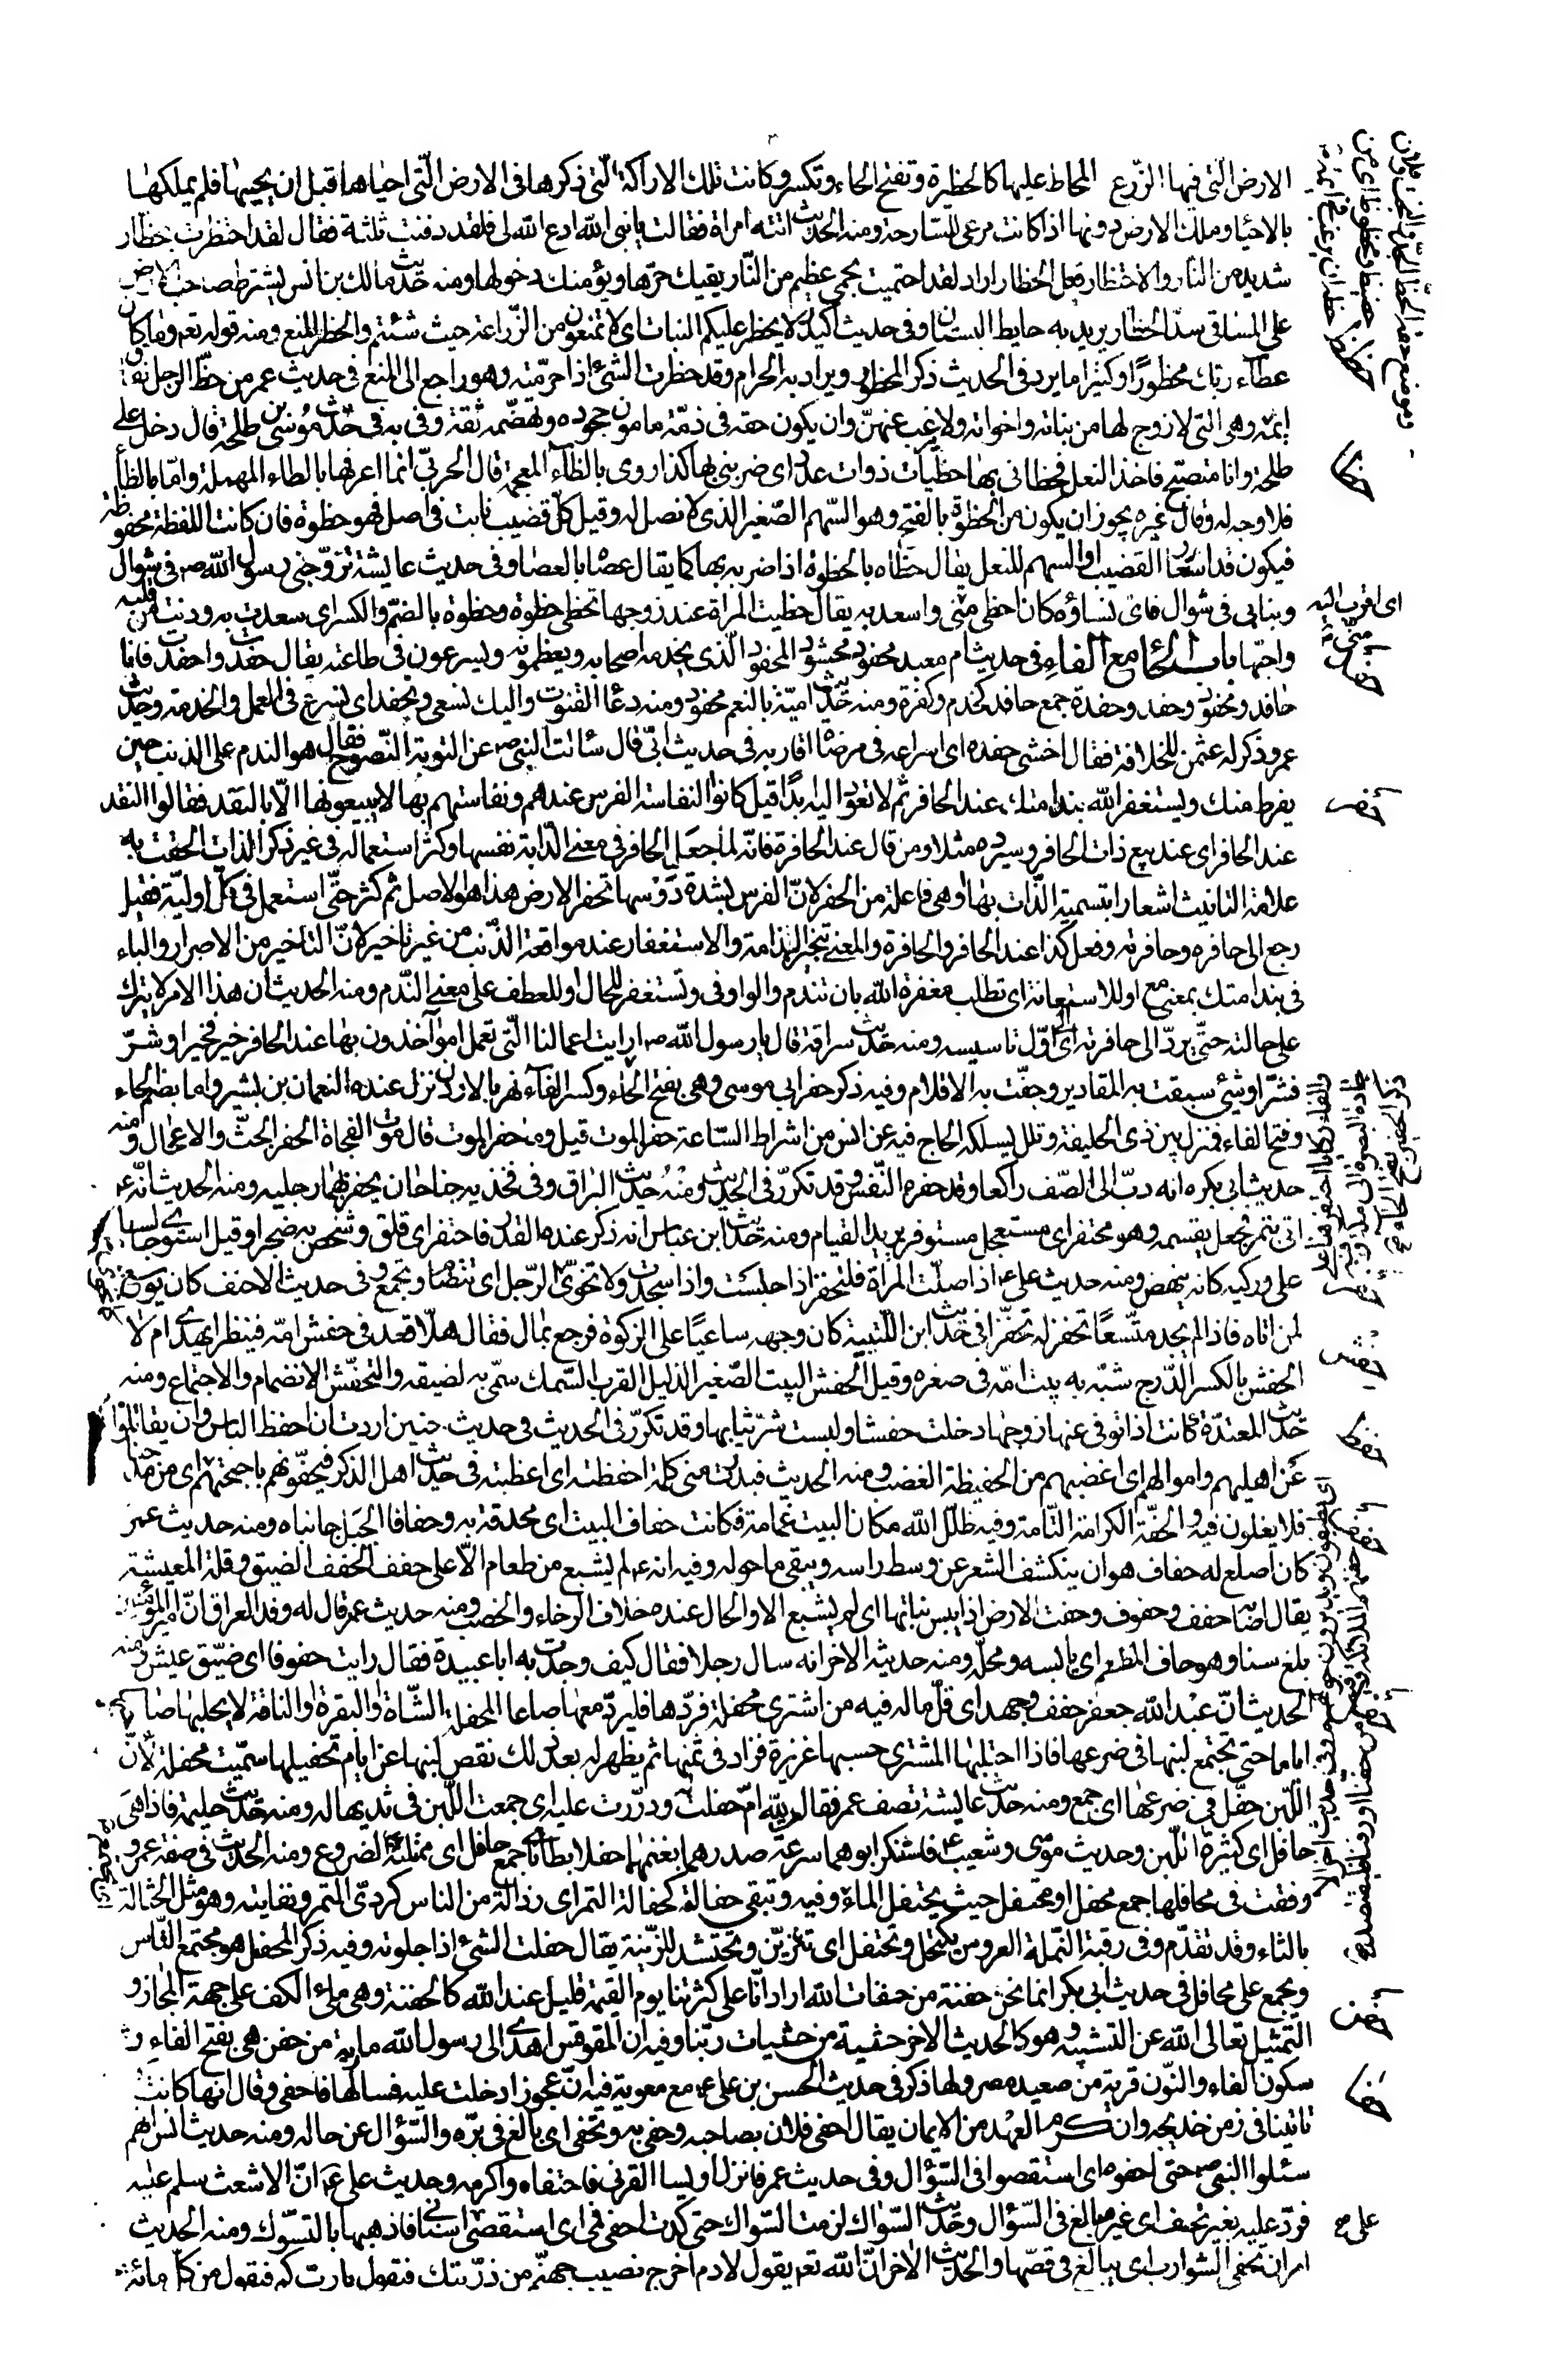 الارض الّتى فيها الزّرع المحاط عليها كالحظيرة وتفتح الحاء وتكسر وكانت تلك الاراكة الّتى ذكرها فى الارض الّتى احياها قبل ان يحييها فلم يملكها
بالاحيا وملك الارض دونها اذ كانت مرعى للسّارحة ومنه الحديث اتته امراة فقالت يا نبى الله ادع الله لى فلقد دفنت ثلثة فقال لقد احتظرت بحظار
شديد من النار والاحتظار فعل الحظار اراد لقد احتميت بحمى عظيم من النّار يقيك حرّها ويؤمنك دخولها ومنه حديث مالك بن انس يشترط صاحب الارض
على المساقى سدّ الحظار يريد به حايط البستان وفى حديث اكيدر لا يحظر عليكم النبات اى لا تمنعون من الزّراعة حيث شئتم والحظر المنع ومنه قوله تعم وما كان
عطآء ربّك محظورًا وكثيرا ما يرد فى الحديث ذكر المحظور ويراد به الحرام وقد حظرت الشئ اذا حرّمته وهو راجع الى المنع فى حديث عمر من حظّ الرجل نفاق
ايّمه وهى التى لا زوج لها من بناته واخواته ولا يرغب عنهنّ وان يكون حقه فى ذمّة مامون جحوده وتهضّمه ثقة وفى به فى حديث موسى بن طلحة قال دخل على
طلحة وانا متصبّح فاخذ النعل فحظانى بها حظيّات ذوات عدد اى ضربنى بها كذا روى بالظآء المعجمة قال الحربىّ انما اعرفها بالطاء المهملة وامّا بالظآ
فلا وجه له وقال غيره يجوز ان يكون من الحظوة بالفتح وهو السّهم الصّغير الذى لا نصل له وقيل كلّ قضيب نابت فى اصل فهو حظوة فان كانت اللفظة محفوظة
فيكون قد استعار القضيب او السهم للنعل يقال حظاه بالحظوة اذا ضربه بها كما يقال عصاه بالعصا وفى حديث عايشة تزوّجنى رسول الله ص فى شوال
وبنا بى فى شوال فاىّ نساؤه كان احظى منّى واسعد به يقال حظيت المراة عند زوجها تحظى حظوة وحظوة بالضمّ والكسر اى سعدت به ودنت من قلبه
واحبّها باب الحاء مع الفاء فى حديث ام معبد محفود محشود المحفود الّذى يخدمه اصحابه ويعظمونه ويسرعون فى طاعته يقال حفدت واحفدت فانا
حافد ومحفود وحفد وحفدة جمع حافد كخدم وكفرة ومنه حديث اميّة بالنعم محفود ومنه دعآ القنوت واليك نسعى ونحفد اى نسرع فى العمل والخدمة وحديث
عمر وذكر له عثمن للخلافة فقال اخشى حفده اى اسراعه فى مرضاة اقاربه فى حديث ابىّ قال سالت النبى ص عن التوبة النّصوح فقال هو الندم على الذنب حين
يفرط منك وتستغفر الله بندامتك عند الحافر ثم لا تعود اليه ابدًا قيل كانوا لنفاسة الفرس عندهم ونفاستهم بها لا يبيعونها الّا بالنقد فقالوا النقد
عند الحافر اى عند بيع ذات الحافر وسيّره مثلا ومن قال عند الحافرة فانّه لما جعل الحافر فى معنى الدّابة نفسها وكثر استعماله فى غير ذكر الذات الحقت به
علامة التانيث اشعارا بتسمية الذّات بها او هى فاعلة من الحفر لانّ الفرس بشدة دَوْسها تحفر الارض هذا هو الاصل ثم كثر حتّى استعمل فى كلّ اوليّة فقيل
رجع الى حافره وحافرته وفعل كذا عند الحافر والحافرة والمعنى تنجيز الندامة والاستغفار عند مواقعة الذّنب من غير تاخير لانّ التاخير من الاصرار والباء
فى بندامتك بمعنى مع او للاستعانة اى تطلب مغفرة الله بان تندم والواو فى وتستغفر للحال او للعطف على معنى النّدم ومنه الحديث ان هذا الامر لا يترك
على حالته حتّى يردّ الى حافرته اى اوّل تاسيسه ومنه حديث سراقة قال يا رسول الله ص ارايت اعمالنا الّتى نعمل امؤاخذون بها عند الحافر خير فخير او شرّ
فشرّ او شئ سبقت به المقادير وجفّت به الاقلام وفيه ذكر حفر ابى موسى وهى بفتح الحاء وكسر الفآء نهر بالاردن نزل عنده النعمان بن بشير واما بضم الحاء
وفتح الفاء فمنزل بين ذى الحليفة وملل يسلكه الحاج فيه عن انس من اشراط السّاعة حفز الموت قيل وما حفز الموت قال موت الفجاة الحفز الحثّ والاعجال ومنه
حديث ابى بكره انه دبّ الى الصّف راكعا وقد حفزه النّفس وقد تكرّر فى الحديث ومنه حديث البراق وفى فخذيه جناحان يحفز بهما رجليه ومنه الحديث انّه ع
اتى بتمر فجعل يقسمه وهو محتفز اى مستعجل مستوفز يريد القيام ومنه حديث ابن عباس انه ذكر عنده القدر فاحتفز اى قلق وشخص به ضجرا وقيل استوى جالسا
على وركيه كانه ينهض ومنه حديث على ع اذا صلّت المراة فلتحتفز اذا جلست واذا سجدت ولا تخوّى كما يخوّى الرّجل اى تتضام وتجتمع وفى حديث الاحنف كان يوسع
لمن اتاه فاذا لم يجد متّسعًا تحفّز له تحفّزا فى حديث ابن اللّتبيّة كان وجهه ساعيًا على الزكوة فرجع بمال فقال هلّا قعد فى حفش امّه فينظر ايهدى ام لا
الحفش بالكسر الدّرج شبّه به بيت امّه فى صغره وقيل الحفش البيت الصّغير الذليل القريب السّمك سمّى به لضيقه والتحفّش الانضمام والاجتماع ومنه
حديث المعتدّة كانت اذا توفى عنها زوجها دخلت حفشا ولبست شرّ ثيابها وقد تكرّر فى الحديث فى حديث حنين اردت ان احفظ الناس وان يقاتلوا
عَن اهليهم واموالهم اى اغضبهم من الحفيظة الغضب ومنه الحديث فبدرت منى كلمة احفظته اى اغضبته فى حديث اهل الذكر فيحفّونهم باجنحتهم اى من مدحنا
فلا يغلون فيه والحفّة الكرامة التّامة وفيه ظلّل الله مكان البيت غمامة فكانت حفاف البيت اى محدقة به وحفافا الجبل جانباه ومنه حديث عمر
كان اصلع له حفاف هو ان ينكشف الشعر عن وسط راسه ويبقى ما حوله وفيه انه ع لم يشبع من طعام الّا على حفف الحفف الضيق وقلة المعيشة
يقال اصابه حفف وحفوف وحفت الارض اذا يبس نباتها اى لم يشبع الا والحال عنده خلاف الرخاء والخصب ومنه حديث عمر قال له وفد العراق انّ امير المؤمنين
بلغ سنا وهو حاف المطعم اى يابسه ومحلّه ومنه حديثه الاخر انه سال رجلا فقال كيف وجدت به ابا عبيدة فقال رايت حفوفا اى ضيّق عيش ومنه
الحديث انّ عبد الله جعفر حفف وجهد اى قلّ ماله فيه من اشترى محفلة فردّها فليردّ معها صاعا المحفلة الشّاة او البقرة او الناقة لا يحلبها صا
اياما حتى يجتمع لبنها فى ضرعها فاذا احتلبها المشترى حسبها غزيرة فزاد فى ثمنها ثم يظهر له بعد ذلك نقص لبنها عن ايام تحفيلها سمّيت محفلة لانّ
اللّبن حفّل فى ضرعها اى جمع ومنه حديث عايشة تصف عمر فقالت لله امّ حفلت له ودرّرت عليه اى جمعت اللّبن فى ثديها له ومنه حديث حليمة فاذا هى
حافل اى كثيرة اللّبن وحديث موسى وشعيب ع فاستنكر ابوهما سرعة صدرهما بغنمهما حفلا بطانا جمع حافل اى ممتلئة الضروع ومنه الحديث فى صفة عمر
وفقت فى محافلها جمع محفل او محتفل حيث يحتفل الماء وفيه وتبقى حفالة كحفالة التمر اى رذالة من الناس كردىّ التمر ونفايته وهو مثل الحثالة
بالثاء وقد تقدّم وفى رقية النّملة العروس تكتحل وتحتفل اى تتزيّن وتحتشد للزّينة يقال حفلت الشئ اذا جلوته وفيه ذكر المحفل هو مجتمع النّاس
ويجمع على محافل فى حديث ابى بكر انما نحن حفنة من حفنات الله اراد انّا على كثرتنا يوم القيمة قليل عند الله كالحفنة وهى ملء الكف على جهة المجاز و
التّمثيل تعالى الله عن التشبيه وهو كالحديث الاخر حثية من حثيات ربّنا وفيه ان المقوقس اهدى الى رسول الله مارية من حفن هى بفتح الفاء و
سكون الفاء والنّون قرية من صعيد مصر ولها ذكر فى حديث الحسن بن على ع مع معوية فيه انّ عجوزا دخلت عليه فسالها فاحفى وقال انها كانت
تاتينا فى زمن خديجة وان كرم العهد من الايمان يقال احفى فلان بصاحبه وحفى به وتحفى اى بالغ فى برّه والسّؤال عن حاله ومنه حديث انس انهم
سئلوا النبى ص حتى احفوه اى استقصوا فى السّؤال وفى حديث عمر فانزل اويسا القرنى فاحتفاه واكرمه وحديث على ع انّ الاشعث سلم عليه
فردّ عليه بغير تحف اى غير مبالغ فى السّؤال وحديث السّواك لزمت السّواك حتى كدت احفى فمى اى استقصى اسنانى فاذهبها بالتسّوك ومنه الحديث
امر ان تحفى الشوارب اى يبالغ فى قصّها والحديث الاخر انّ الله تعم يقول لادم اخرج نصيب جهنّم من ذرّيتك فيقول يا رب كم فيقول من كلّ مائة
حظر
حظظ
حظا
اى اقرب اليه منّى
حفد
حفر
حفز
حفش
حفظ
حفف
حفل
حفن
حفا